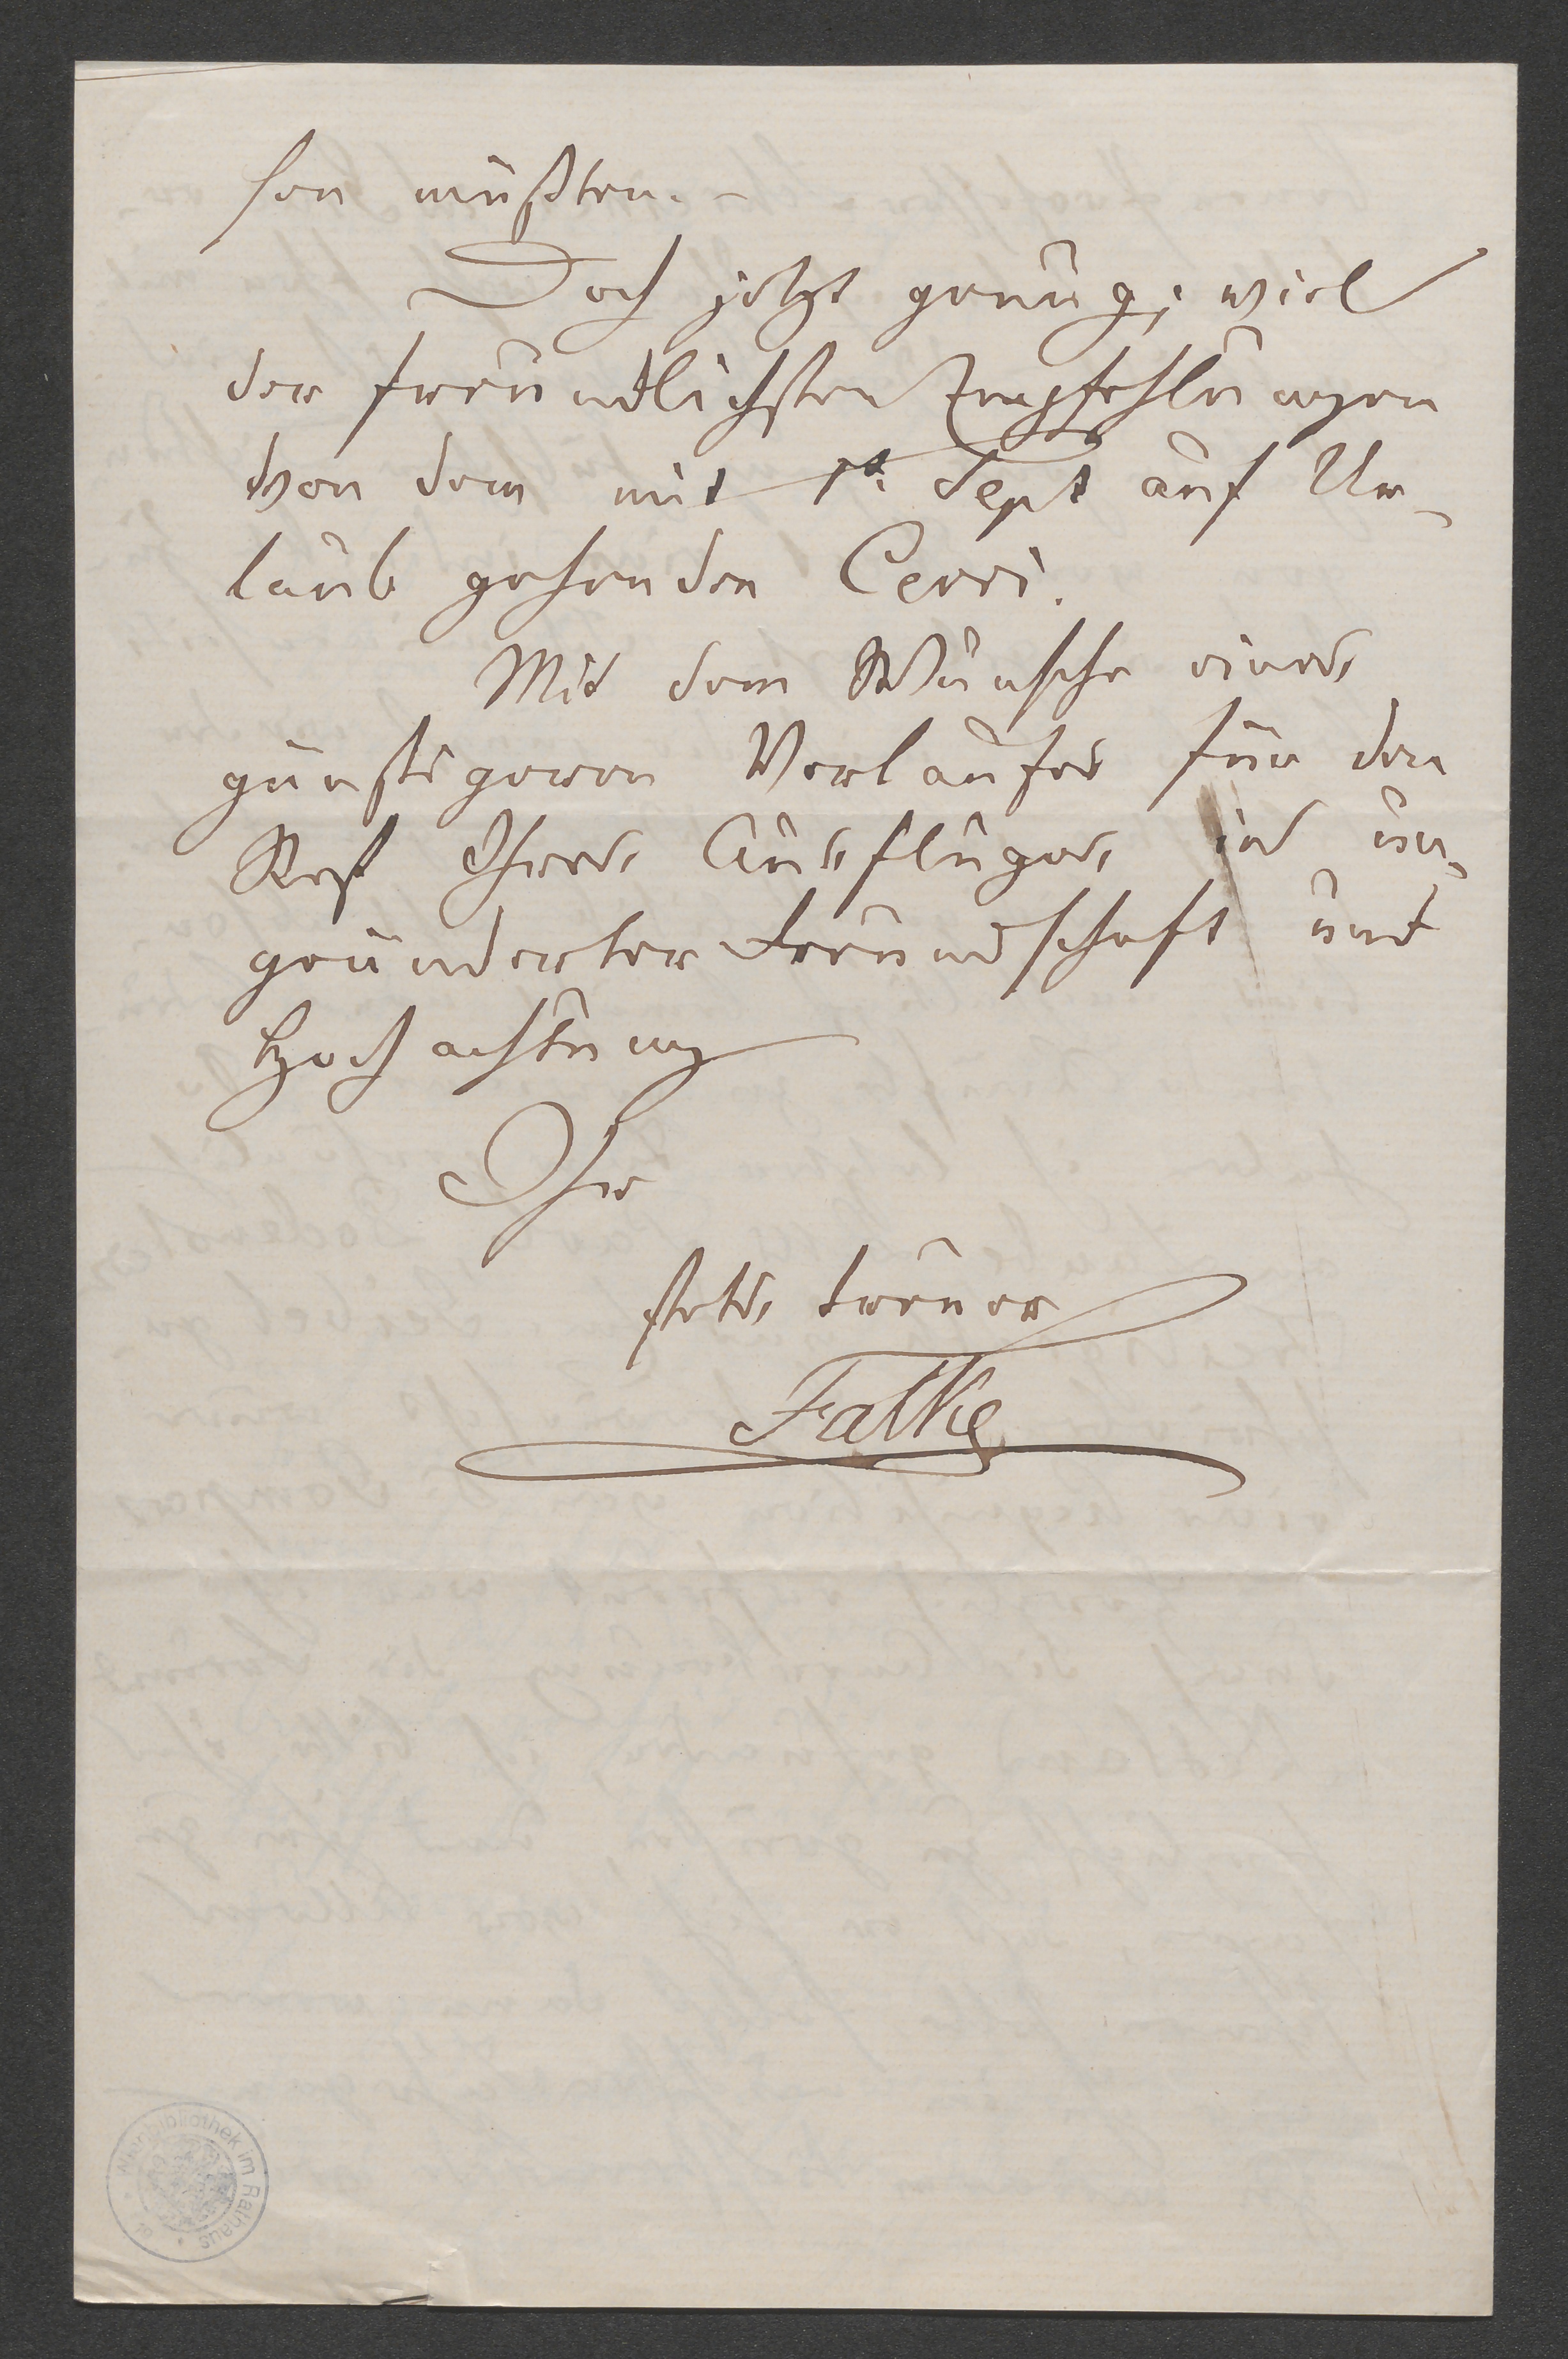 sen müßten. –
Doch jetzt genug; viel
der freundlichsten Empfehlungen
von dem mit 1t. Sept auf Ur-
laub gehenden Cerri.
Mit dem Wunsche eines
günstigeren Verlaufes für den
Rest Ihres Ausfluges in un-
geänderter Freundschaft und
Hochachtung
Ihr
stets treuer
Falke
Wienbibliothek im Rathaus